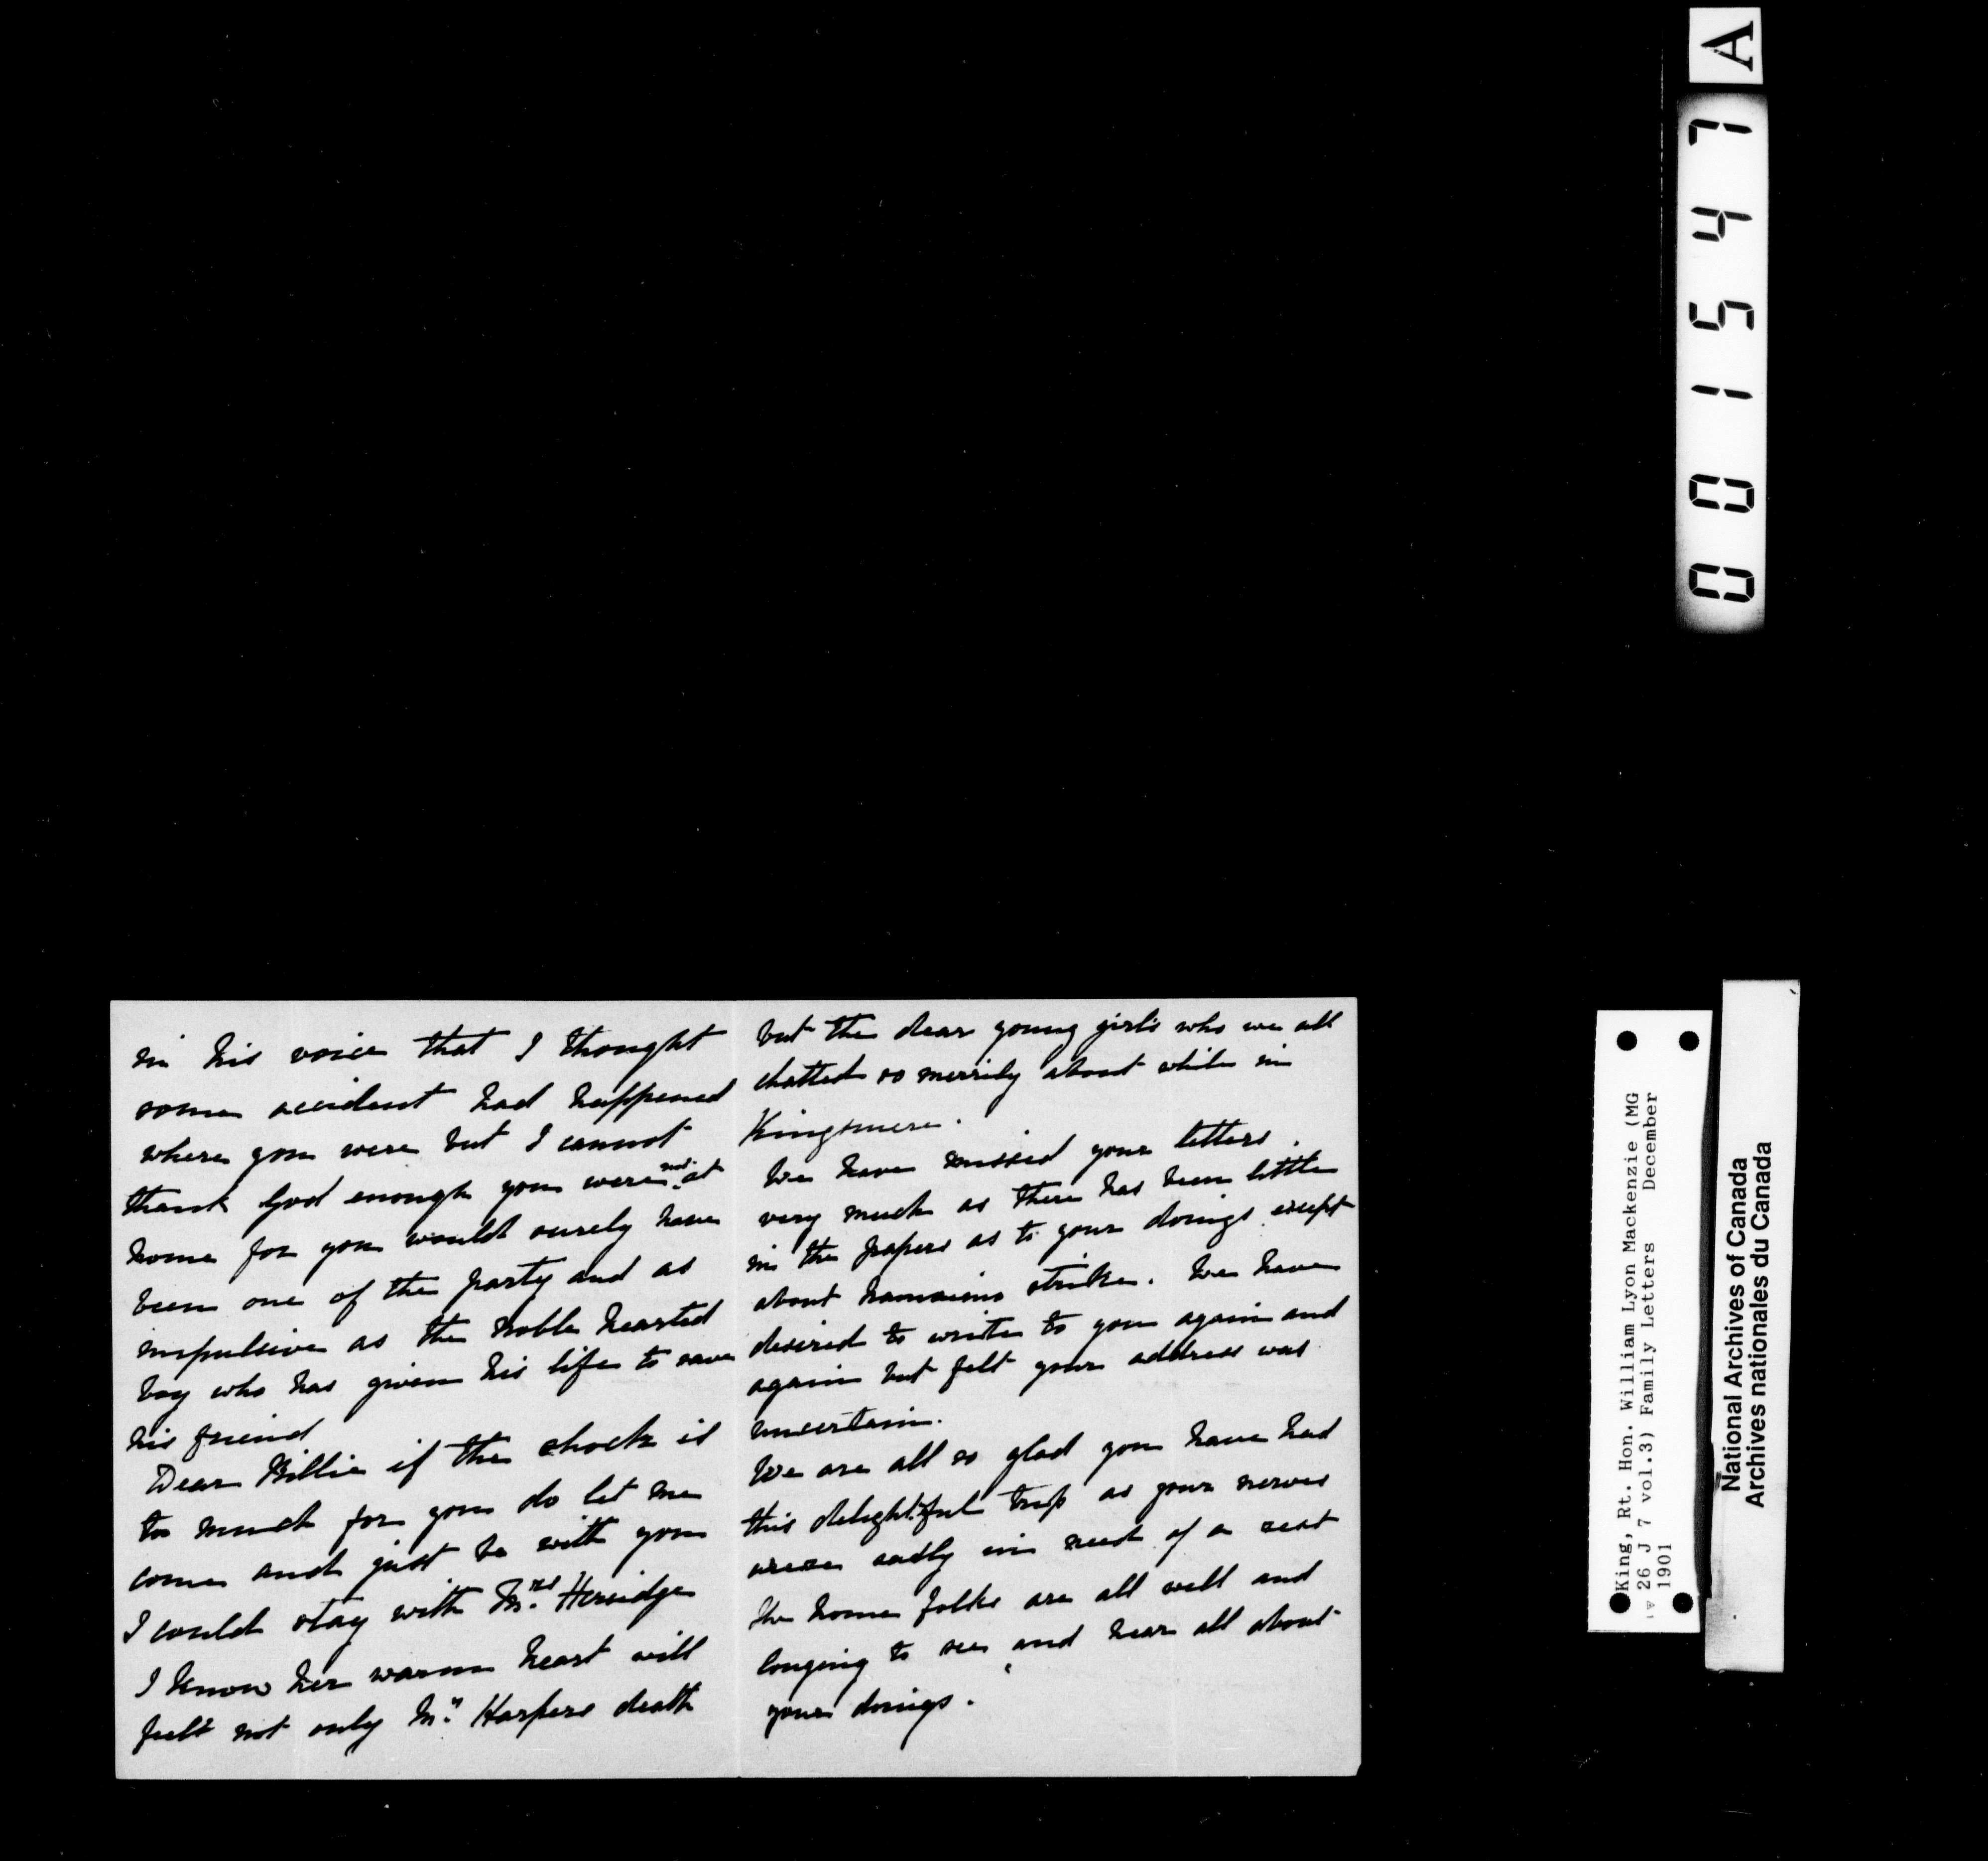 in his voice that I thought
some accident had happened
where you were but I cannot
thank God enough you were not at
home for you would surely have
been one of the party and as
impulsive as the noble hearted
boy who has given his life to save
his friend
Dear Billie if the shock is
too much for you do let me
come and just be with you
I could stay with Mrs. Herridge
I know her warm heart will
feel not only Mr. Harpers death
but the dear young girls who we all
chatted so merrily about while in
Kingsmere.
We have missed your letters.
very much as there has been little
in the papers as to your doings except
about strike. We have
desired to write to you again and
again but felt your address was
uncertain.
We are all so glad you have had
this delightful trip as your nerves
were sadly in need of a rest
the home folks are all well and
longing to see and hear all about
your doings.
A
001547
King, Rt. Hon. William Lyon Mackenzie (MG
26 J 7 vol.3) Family Letters December
1901
National Archives of Canada
Archives nationales du Canada